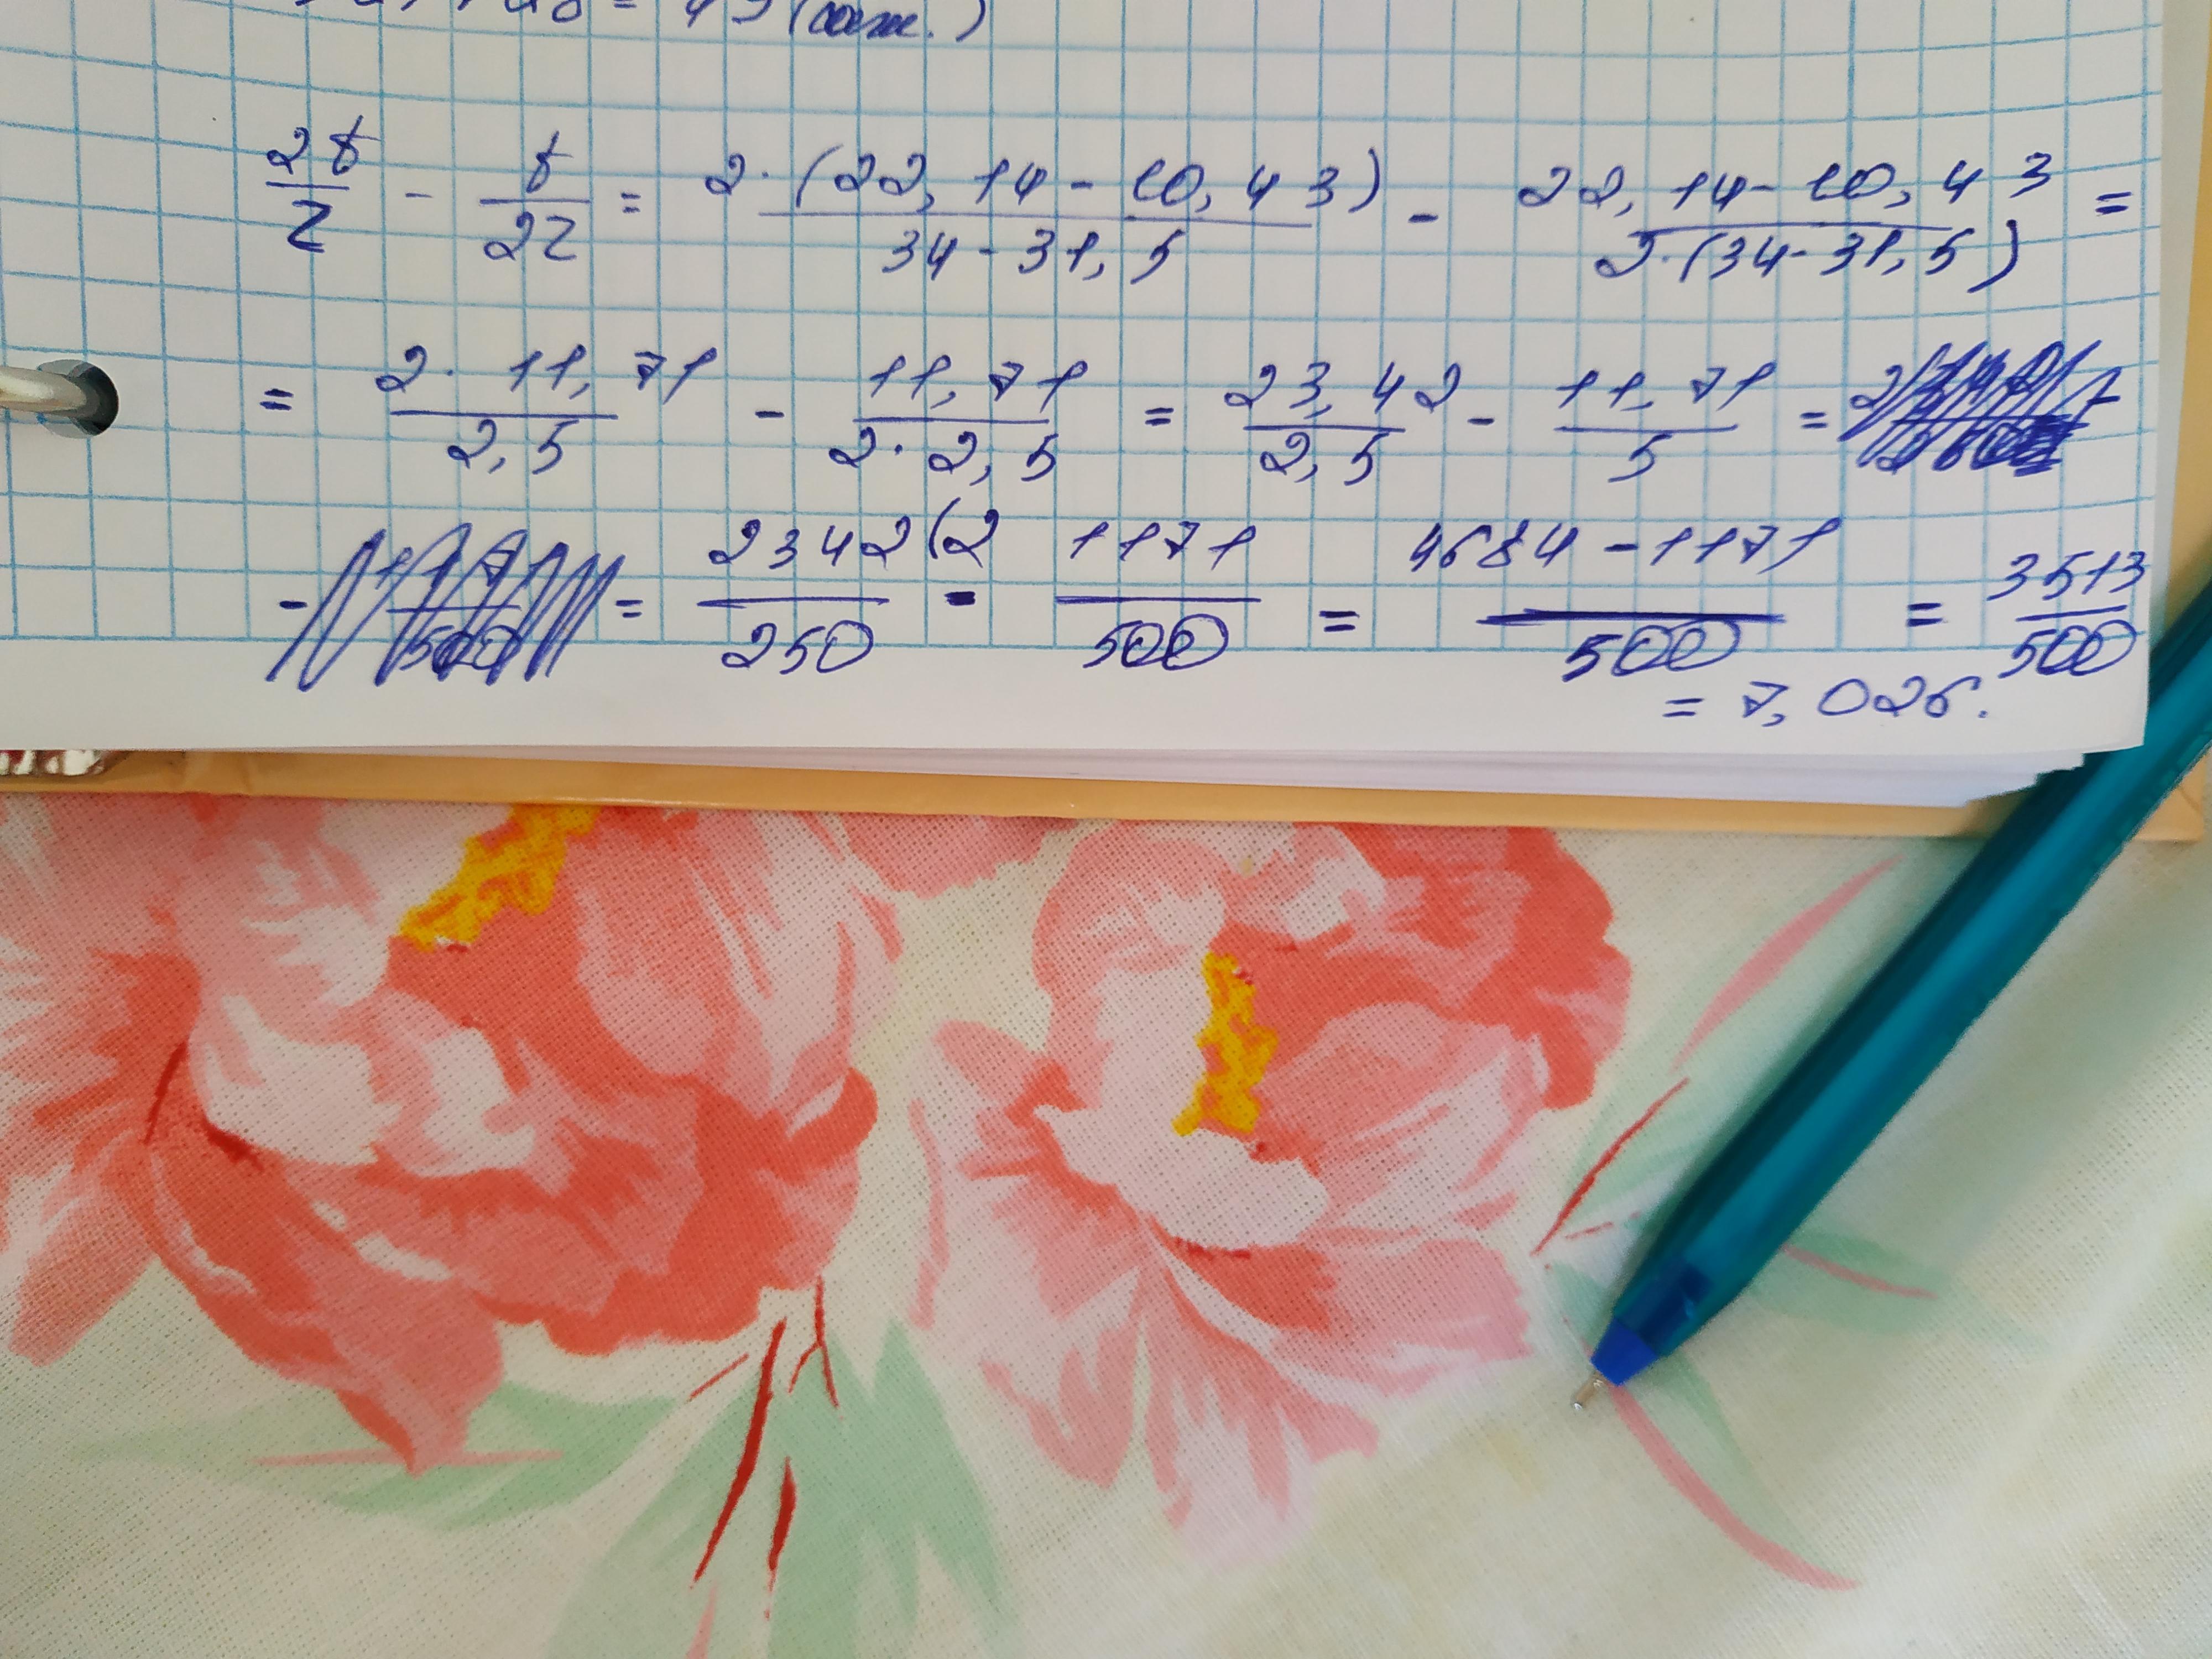 = 49 (саж.)
2t/z - t/2z = 2·(22,14 - 10,43)/34 - 31,5 - 22,14 - 10,43/2·(34 - 31,5) =
= 2·11,71/2,5 - 11,71/2·2,5 = 23,42/2,5 - 11,71/5 =
- = 2342(2/250 - 1171/500 = 4684 - 1171/500 = 3513/500
= 7,026.